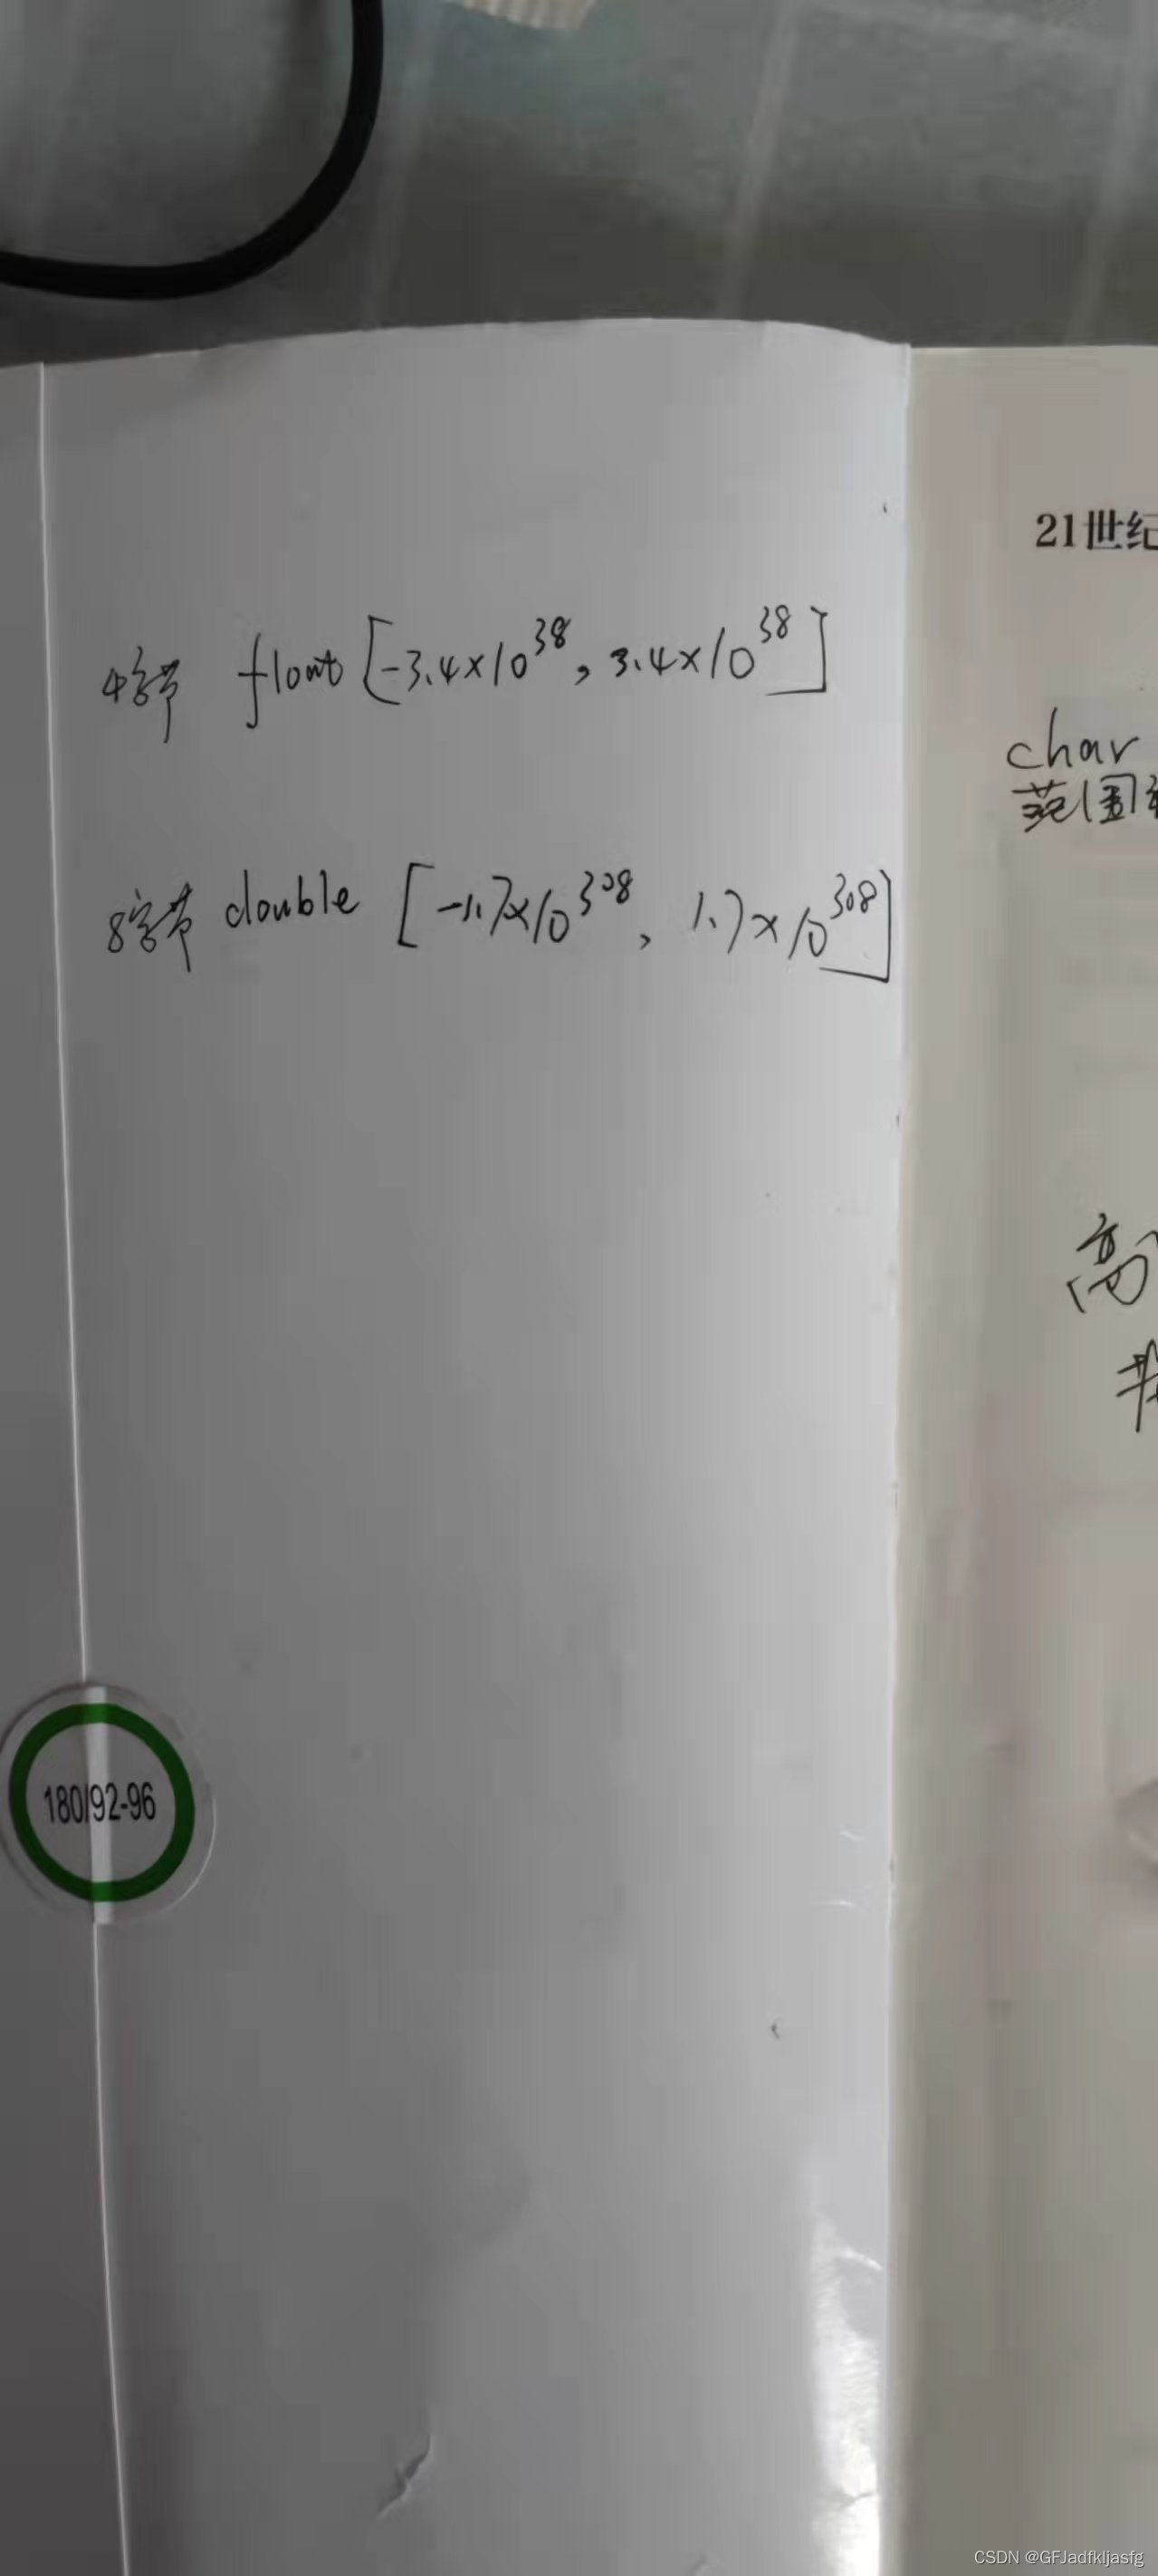 21世纪
4字节 float [-3.4×10^38, 3.4×10^38]
char
范围
8字节 double [-1.7×10^308, 1.7×10^308]
高
180/92-96
CSDN @GFJadfkljasfg